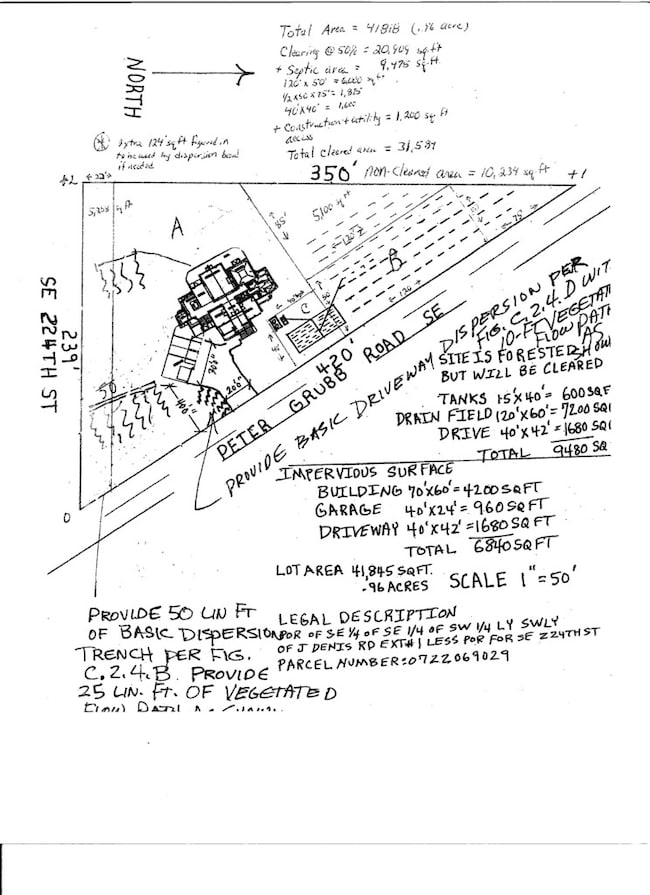 Total Area = 41818 (.96 acre)
Clearing @ 50% = 20,909 sq.ft
+ Septic area = 9,475 sq.ft.
120' x 50' = 6,000 sq ft
1/2 x 50 x 75' = 1,875
40' x 40' = 1,600
+ Construction + utility = 1,200 sq ft
access
Total cleared area = 31,584
NORTH
extra 124' sq ft figured in
to be used by dispersion bowl
if needed
350' non-cleared area = 10,234 sq ft
+2
+1
5,100 sq ft
A
85'
120'
75'
B
C
120
SE 224TH ST
239'
50
100'
200'
420'
PETER GRUBB ROAD SE
0
PROVIDE BASIC DRIVEWAY DISPERSION PER
FIG. C.2.4.D WIT
10-FT VEGETATI
FLOW PATH
AS
SITE IS FORESTED SHOW
BUT WILL BE CLEARED
TANKS 15'X40' = 600 SQ F
DRAIN FIELD 120'X60' = 7200 SQ
DRIVE 40'X42' = 1680 SQ
TOTAL 9480 SQ
IMPERVIOUS SURFACE
BUILDING 70'X60' = 4200 SQ FT
GARAGE 40'X24' = 960 SQ FT
DRIVEWAY 40'X42' = 1680 SQ FT
TOTAL 6840 SQ FT
LOT AREA 41,845 SQ FT.
.96 ACRES
SCALE 1" = 50'
PROVIDE 50 LIN FT
OF BASIC DISPERSION
TRENCH PER FIG.
C.2.4.B. PROVIDE
25 LIN. FT. OF VEGETATED
LEGAL DESCRIPTION
POR OF SE 1/4 OF SE 1/4 OF SW 1/4 LY SWLY
OF J DENIS RD EXT#1 LESS POR FOR SE 224TH ST
PARCEL NUMBER: 0722069029